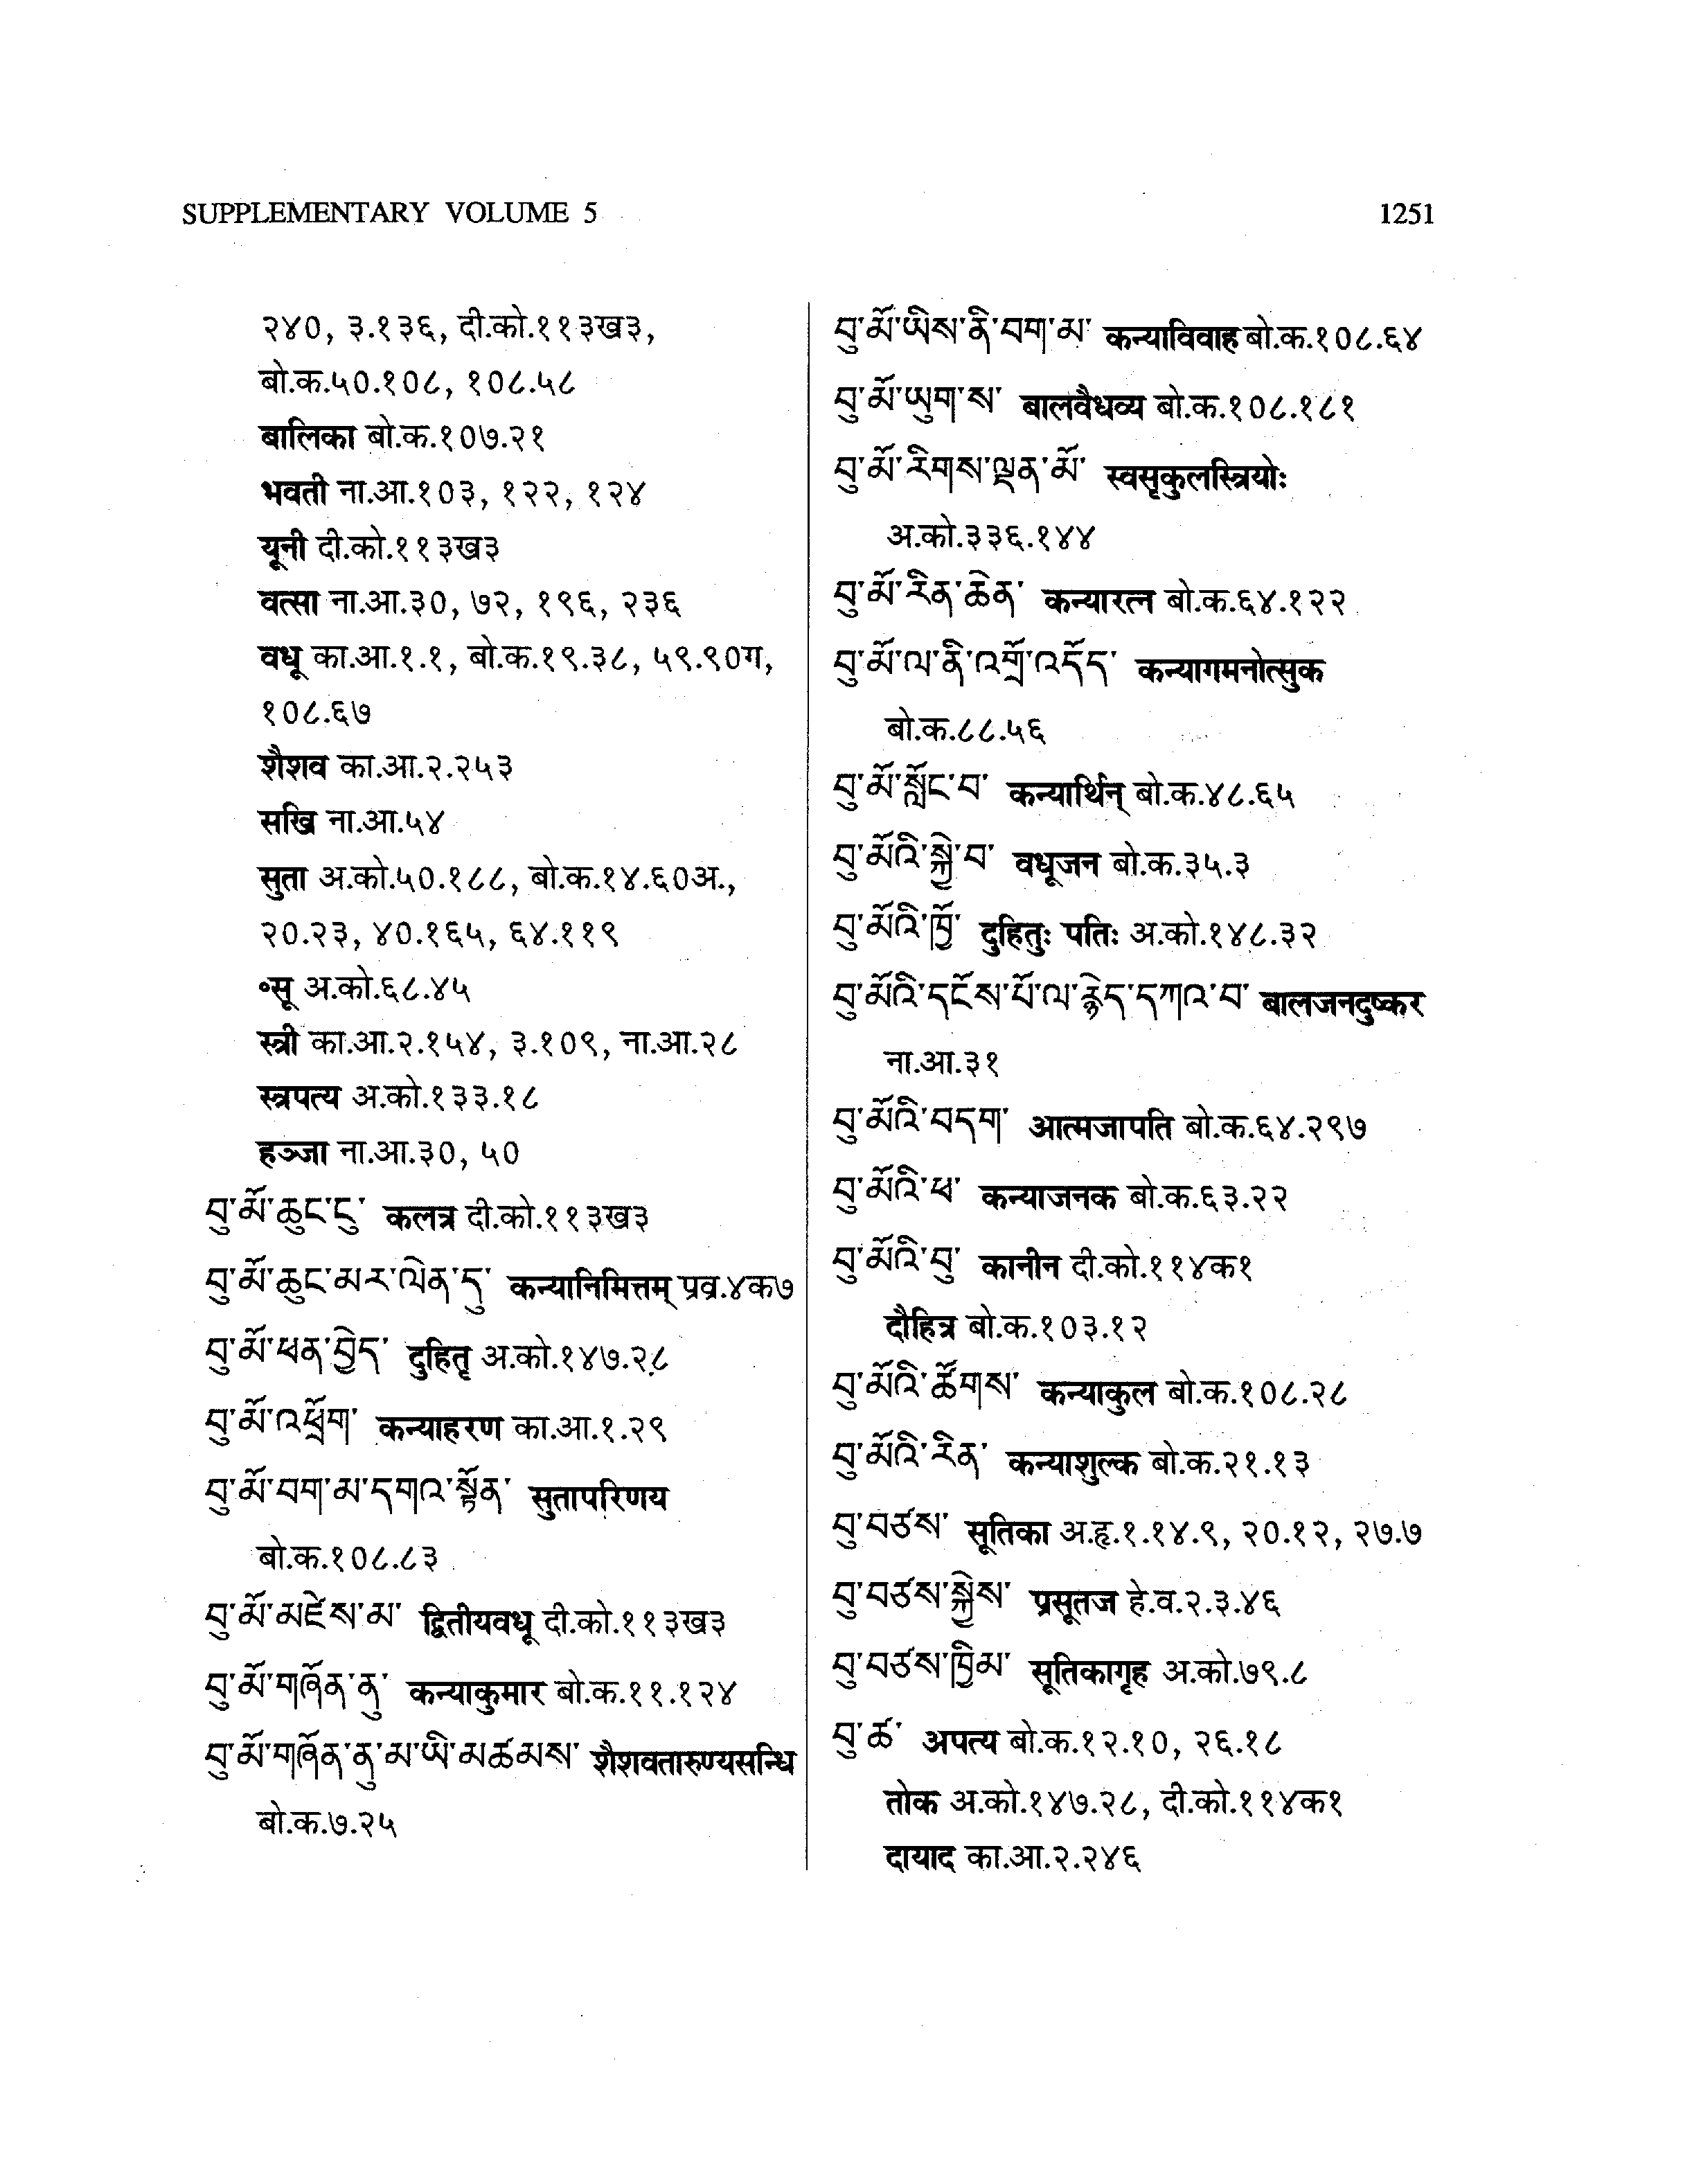 SUPPLEMENTARY VOLUME 5 1251
२४०, ३.१३६, दी.को.११३ख३,
बो.क.५०.१०८, १०८.५८
बालिका बो.क.१०७.२१
भवती ना.आ.१०३, १२२, १२४
यूनी दी.को.११३ख३
वत्सा ना.आ.३०, ७२, १९६, २३६
वधू का.आ.१.१, बो.क.१९.३८, ५९.९०ग,
१०८.६७
शैशव का.आ.२.२५३
सखि ना.आ.५४
सुता अ.को.५०.१८८, बो.क.१४.६०अ.,
२०.२३, ४०.१६५, ६४.११९
॰सू अ.को.६८.४५
स्त्री का.आ.२.१५४, ३.१०९, ना.आ.२८
स्त्रपत्य अ.को.१३३.१८
हञ्जा ना.आ.३०, ५०
བུ་མོ་ཆུང་ངུ་ कलत्र दी.को.११३ख३
བུ་མོ་ཆུང་མར་ལེན་དུ་ कन्यानिमित्तम् प्रव्र.४क७
བུ་མོ་ཕན་བྱེད་ दुहितृ अ.को.१४७.२८
བུ་མོ་འཕྲོག་ कन्याहरण का.आ.१.२९
བུ་མོ་བག་མ་དགའ་སྟོན་ सुतापरिणय
बो.क.१०८.८३
བུ་མོ་མཛེས་མ་ द्वितीयवधू दी.को.११३ख३
བུ་མོ་གཞོན་ནུ་ कन्याकुमार बो.क.११.१२४
བུ་མོ་གཞོན་ནུ་མ་ཡི་མཚམས་ शैशवतारुण्यसन्धि
बो.क.७.२५
བུ་མོ་ཡིས་ནི་བག་མ་ कन्याविवाह बो.क.१०८.६४
བུ་མོ་ཡུག་ས་ बालवैधव्य बो.क.१०८.१८१
བུ་མོ་རིགས་ལྡན་མོ་ स्वसृकुलस्त्रियोः
अ.को.३३६.१४४
བུ་མོ་རིན་ཆེན་ कन्यारत्न बो.क.६४.१२२
བུ་མོ་ལ་ནི་འགྲོ་འདོད་ कन्यागमनोत्सुक
बो.क.८८.५६
བུ་མོ་སློང་བ་ कन्यार्थिन् बो.क.४८.६५
བུ་མོའི་སྐྱེ་བ་ वधूजन बो.क.३५.३
བུ་མོའི་ཁྱོ་ दुहितुः पतिः अ.को.१४८.३२
བུ་མོའི་དངོས་པོ་ལ་རྙེད་དཀའ་བ་ बालजनदुष्कर
ना.आ.३१
བུ་མོའི་བདག་ आत्मजापति बो.क.६४.२९७
བུ་མོའི་ཕ་ कन्याजनक बो.क.६३.२२
བུ་མོའི་བུ་ कानीन दी.को.११४क१
दौहित्र बो.क.१०३.१२
བུ་མོའི་ཚོགས་ कन्याकुल बो.क.१०८.२८
བུ་མོའི་རིན་ कन्याशुल्क बो.क.२१.१३
བུ་བཙས་ सूतिका अ.हृ.१.१४.९, २०.१२, २७.७
བུ་བཙས་སྐྱེས་ प्रसूतज हे.व.२.३.४६
བུ་བཙས་ཁྱིམ་ सूतिकागृह अ.को.७९.८
བུ་ཚ་ अपत्य बो.क.१२.१०, २६.१८
तोक अ.को.१४७.२८, दी.को.११४क१
दायाद का.आ.२.२४६